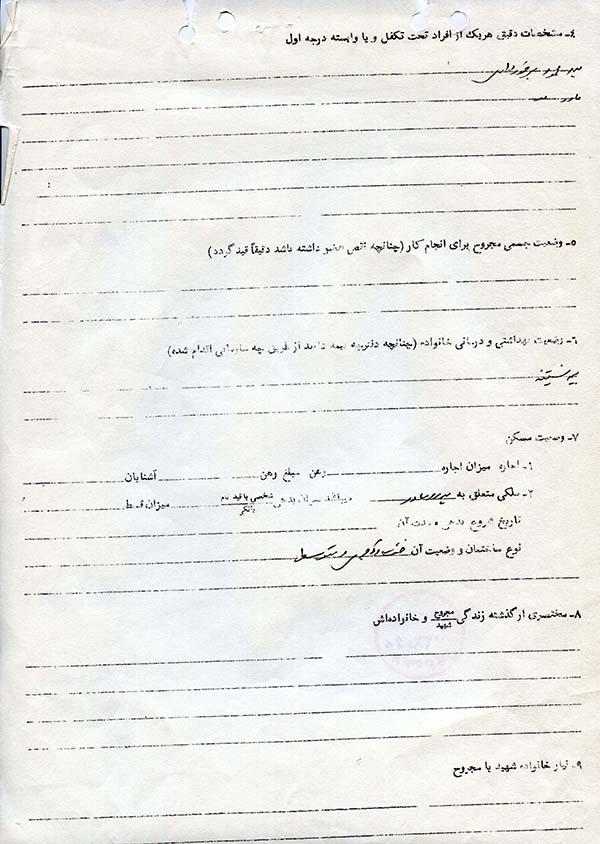 ۴ـ مشخصات دقیق هریک از افراد تحت تکفل و یا وابسته درجه اول
۵ـ وضعیت جسمی مجروح برای انجام کار (چنانچه نقص عضو داشته باشد دقیقاً قید گردد)
۶ـ وضعیت بهداشتی و درمانی خانواده (چنانچه دفترچه بیمه دارند از طریق چه سازمانی اقدام شده)
بیمه نیستند
۷ـ وضعیت مسکن
۱ـ اجاره میزان اجاره رهن مبلغ رهن آشنایان
۲ـ ملکی متعلق به میباشد میزان بدهی شخصی با قید نام بانکی میزان قسط
تاریخ شروع بدهی و مدت آن
نوع ساختمان و وضعیت آن
۸ـ مختصری از گذشته زندگی مجروح شهید و خانواده‌اش
۹ـ نیاز خانواده شهید یا مجروح